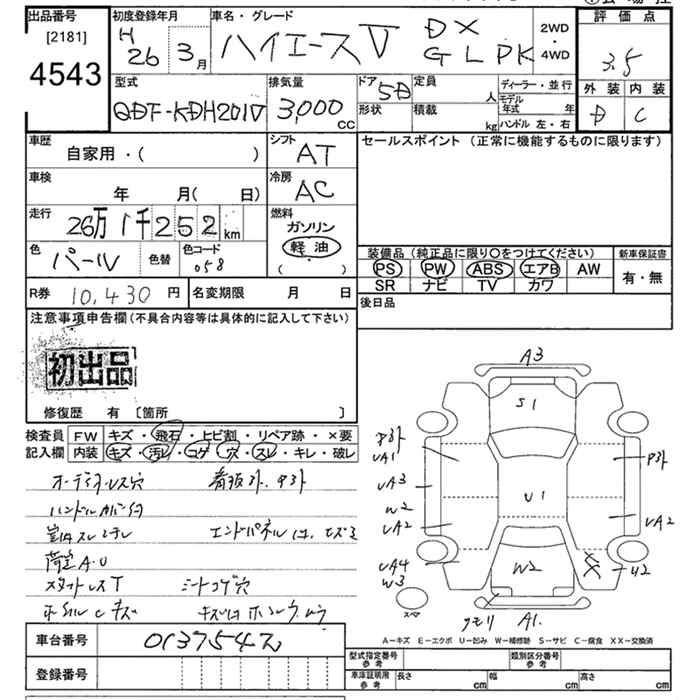 出品番号
[2181]
4543
初度登録年月
H 26年 3月
車名・グレード
ハイエースV DX GL PK
2WD・4WD
評価点
3.5
外装 内装
D C
型式
QDF-KDH201V
排気量
3,000 CC
ドア 5D
形状
定員 人
積載 kg
ディーラー・並行
モデル年式 年
ハンドル 左・右
車歴
自家用・( )
シフト
AT
セールスポイント (正常に機能するものに限ります)
車検
年 月( 日)
冷房
AC
走行
26万1千252km
燃料
ガソリン
軽油
( )
色
パール
色替
色コード
058
装備品 (純正品に限り○をつけてください)
新車保証書
PS PW ABS エアB AW
SR ナビ TV カワ
有・無
R券 10,430 円
名変期限 月 日
後日品
注意事項申告欄(不具合内容等は具体的に記入して下さい)
初出品
修復歴 有 〔箇所 〕
検査員記入欄
FW キズ・飛石・ヒビ割・リペア跡・×要
内装 キズ・汚レ・コゲ・穴・スレ・キレ・破レ
オーディオレス穴 看板外.
エンドパネル
荷室A.U
スタットレスT シートコゲ穴
A3
S1
UA1
UA3
W2
UA2
U1
UA2
UA4
W3
W2
スペア
A1.
A-キズ E-エクボ U-凹み W-補修跡 S-サビ C-腐食 XX-交換済
車台番号
登録番号
型式指定番号 参考
類別区分番号 参考
車庫証明用 参考
長さ cm
幅 cm
高さ cm